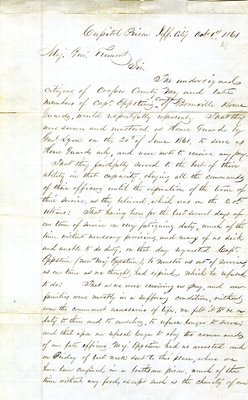 Capitol Prison Jeff. City Oct. 1st 1861
Maj. Genl. Fremont
Sir
The undersigned
citizens of Cooper County Mo, and late
members of Capt. Eppstein's Comp. Boonville Home
Guards, would respectfully represent, That they
were sworn and mustered as Home Guards by
Genl. Lyon on the 20th of June 1861, to serve as
Home Guards only, and were not to receive any pay,
That they faithfully served to the best of their
ability in that capacity, obeying all the commands
of their officers until the expiration of the term of
their service, as they believed, which was on the 20th
That having been for the last several days of
our term of service on very fatiguing duty, much of the
time without necessary provisions, and many of us sick
and unable to do duty, on that day requested Capt.
Eppstein (now Maj. Eppstein), to muster us out of service,
as our time as we thought, had expired, which he refused
to do: That as we were receiving no pay, and our
families were mostly in a suffering condition, without
even the commonest necessaries of life, we felt it to be a
duty to them and to ourselves, to refuse longer to serve,
and that upon our refusal longer to obey the commands
of our late officers, Maj. Eppstein had us arrested and
on Friday of last week sent to this place, where we
have been confined in a loathsome prison, much of the
time without any food, except such as the charity of our